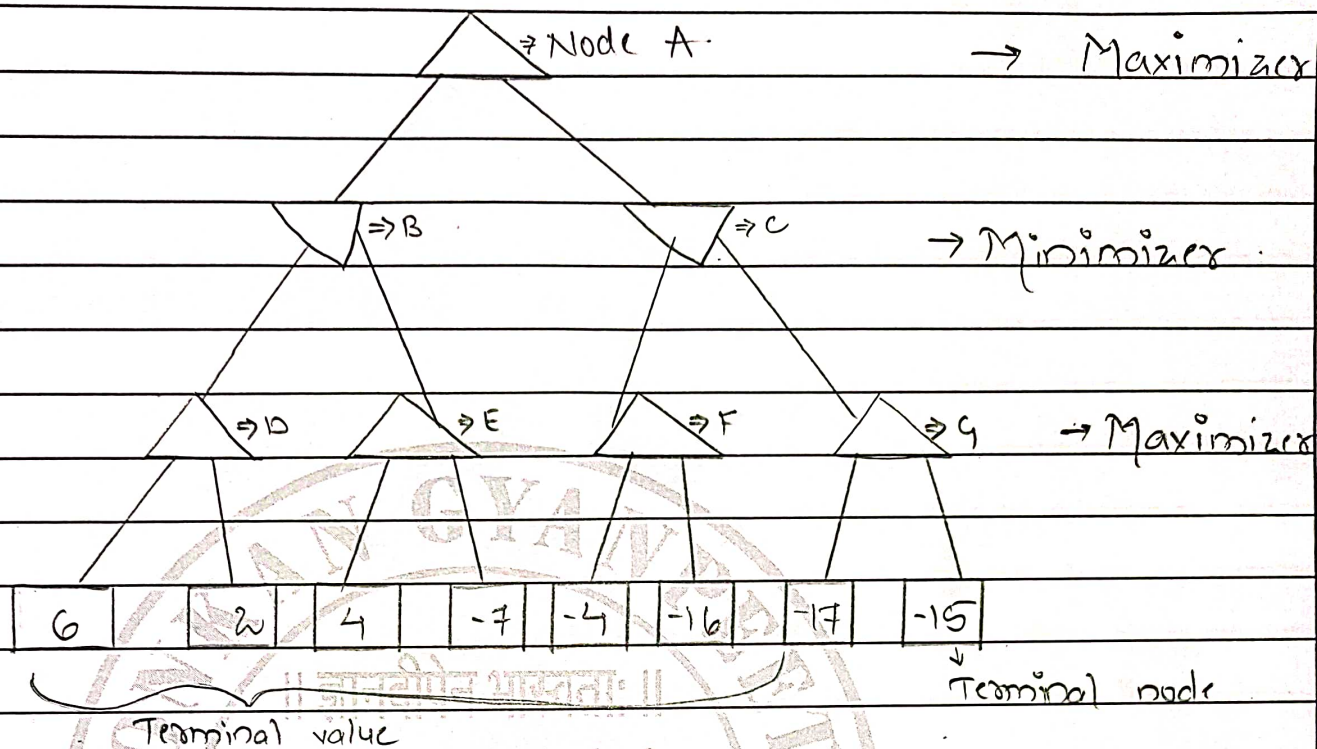 ⇒ Node A. → Maximizer
⇒ B ⇒ C → Minimizer.
⇒ D ⇒ E ⇒ F ⇒ G → Maximizer
6 2 4 -7 -4 -16 -17 -15
Terminal node
Terminal value